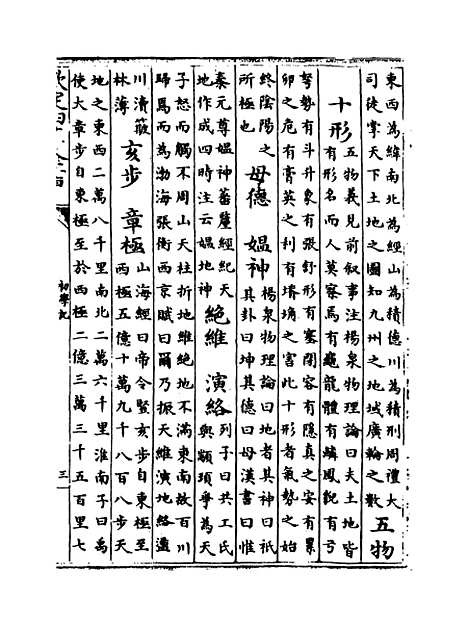 東西為緯南北為經山為積德川為積刑周禮大
司徒掌天下土地之圖知九州之地域廣輪之數
五物
十形
五物義見前叙事注楊泉物理論曰夫土地皆
有形名而人莫察焉有龜龍體有麟鳳貌有弓
弩勢有斗升象有張舒形有塞閉容有隱真之安有累
卵之危有膏英之利有塉埆之害此十形者氣勢之始
終陰陽之
所極也
母德 媪神
楊泉物理論曰地者其神曰祇
其卦曰坤其德曰母漢書曰惟
秦元尊媪神蕃釐經紀天
地作成四時注云媪地神
絶維 演絡
列子曰共工氏
與顓頊爭為天
子怒而觸不周山天柱折地維絶地不滿東南故百川
歸焉而為渤海張衡西京賦曰爾乃振天維演地絡蕩
川瀆簸
林薄
亥步 章極
山海經曰帝令豎亥步自東極至
西極五億十萬九千八百八步天
地之東西二萬八千里南北二萬六千里淮南子曰禹
使大章步自東極至於西極二億三萬三千五百里七
初學記
三